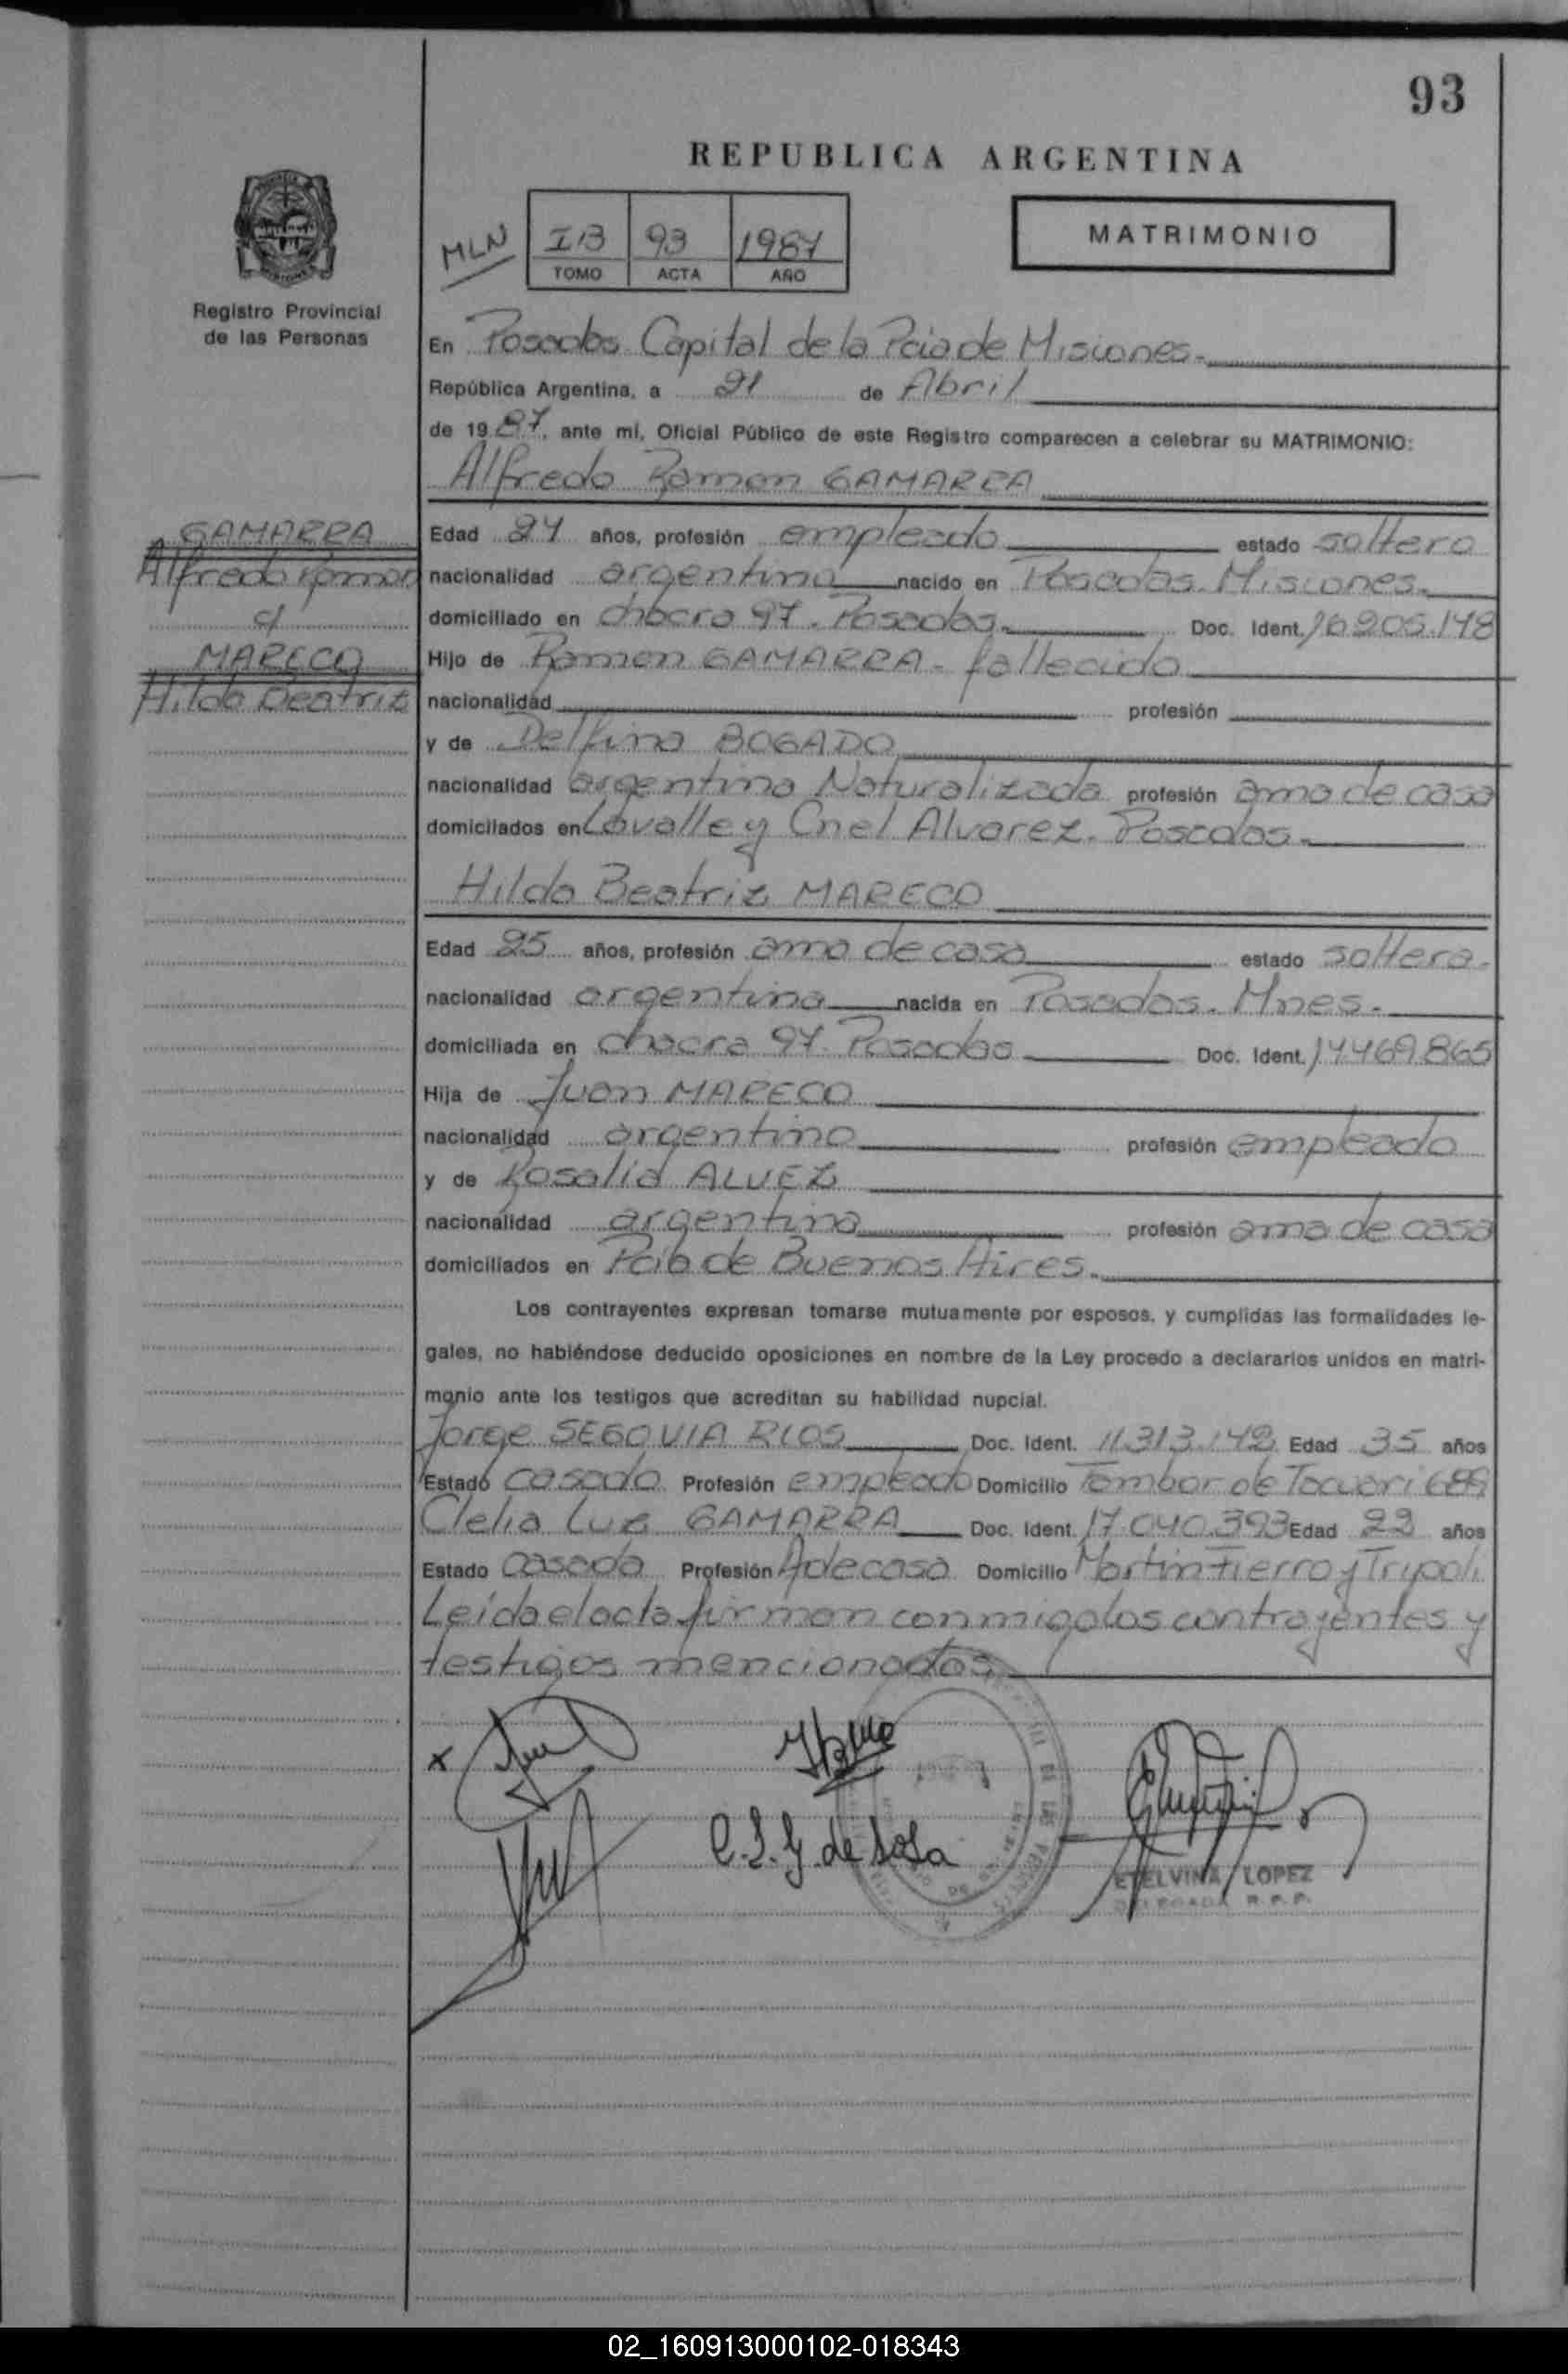 93
REPUBLICA ARGENTINA
MLN
I B 93 1987
TOMO ACTA AÑO
MATRIMONIO
Registro Provincial
de las Personas
En Posadas Capital de la Pcia de Misiones.
República Argentina, a 21 de Abril
de 1987, ante mí, Oficial Público de este Registro comparecen a celebrar su MATRIMONIO:
Alfredo Ramon GAMARRA
GAMARRA
Alfredo Ramon
c/
MARECO
Hilda Beatriz
Edad 24 años, profesión empleado estado soltero
nacionalidad argentina nacido en Posadas. Misiones.
domiciliado en chacra 97. Posadas. Doc. Ident. 16.205.148
Hijo de Ramon GAMARRA - fallecido
nacionalidad profesión
y de Delfina BOGADO
nacionalidad argentina Naturalizada profesión ama de casa
domicilados en Lavalle y Cnel Alvarez. Posadas.
Hilda Beatriz MARECO
Edad 25 años, profesión ama de casa estado soltera.
nacionalidad argentina nacida en Posadas. Mnes.
domiciliada en chacra 97. Posadas Doc. Ident. 14.469.865
Hija de Juan MARECO
nacionalidad argentino profesión empleado
y de Rosalia ALVEZ
nacionalidad argentina profesión ama de casa
domiciliados en Pcia de Buenos Aires.
Los contrayentes expresan tomarse mutuamente por esposos, y cumplidas las formalidades le-
gales, no habiéndose deducido oposiciones en nombre de la Ley procedo a declararlos unidos en matri-
monio ante los testigos que acreditan su habilidad nupcial.
Jorge SEGOVIA RIOS Doc. Ident. 11.313.142 Edad 35 años
Estado casado Profesión empleado Domicilio Tambor de Tacuari 689
Clelia Luz GAMARRA Doc. Ident. 17.040.393 Edad 22 años
Estado casada Profesión A de casa Domicilio Martin Fierro y Tripoli
Leida el acta firman conmigo los contrayentes y
testigos mencionados
x
C. L. G. de Sosa
ETELVINA LOPEZ
DELEGADA R. P. P.
02_160913000102-018343